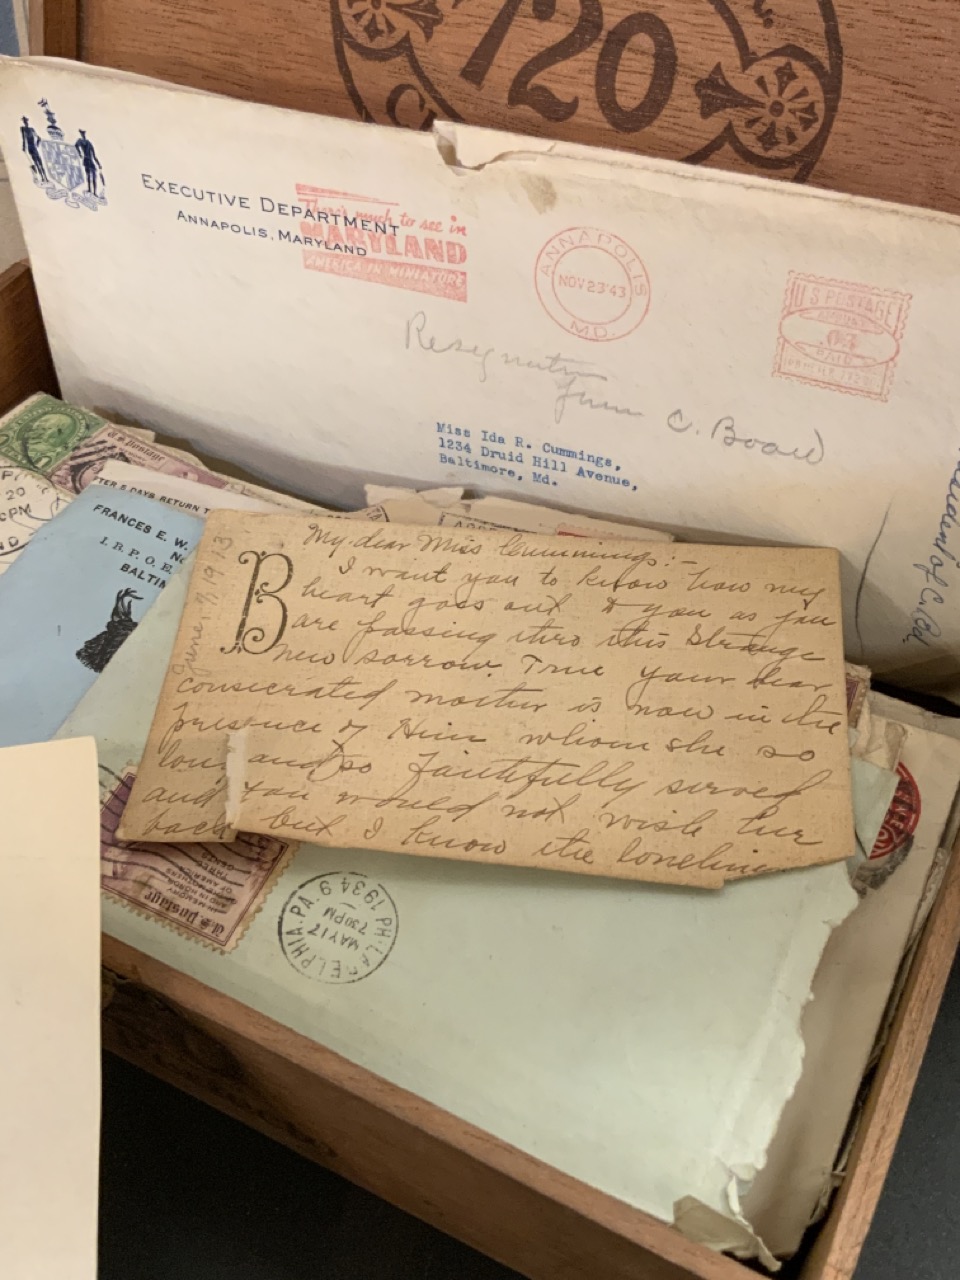 120
EXECUTIVE DEPARTMENT
ANNAPOLIS, MARYLAND
There's much to see in
MARYLAND
AMERICA IN MINIATURE
ANNAPOLIS
NOV 23 '43
MD.
U S POSTAGE
AMOUNT
PAID
Resignation
from C. Board
Miss Ida R. Cummings,
1234 Druid Hill Avenue,
Baltimore, Md.
U.S. Postage
20
PM
AFTER 5 DAYS RETURN T
FRANCES E. W.
I. B. P. O. E.
BALTIM
B
My dear Miss Cummings:-
I want you to know how my
heart goes out to you as you
are passing thro this strange
new sorrow. True your dear
consecrated mother is now in the
presence of Him whom she so
long and so faithfully served
and you would not wish her
back but I know the loneliness
U.S. Postage
THREE CENTS
AND IN MEMORY
AND IN HONOR
OF THE MOTHERS
OF AMERICA
PHILADELPHIA, PA. 9
MAY 17
730 PM
1934